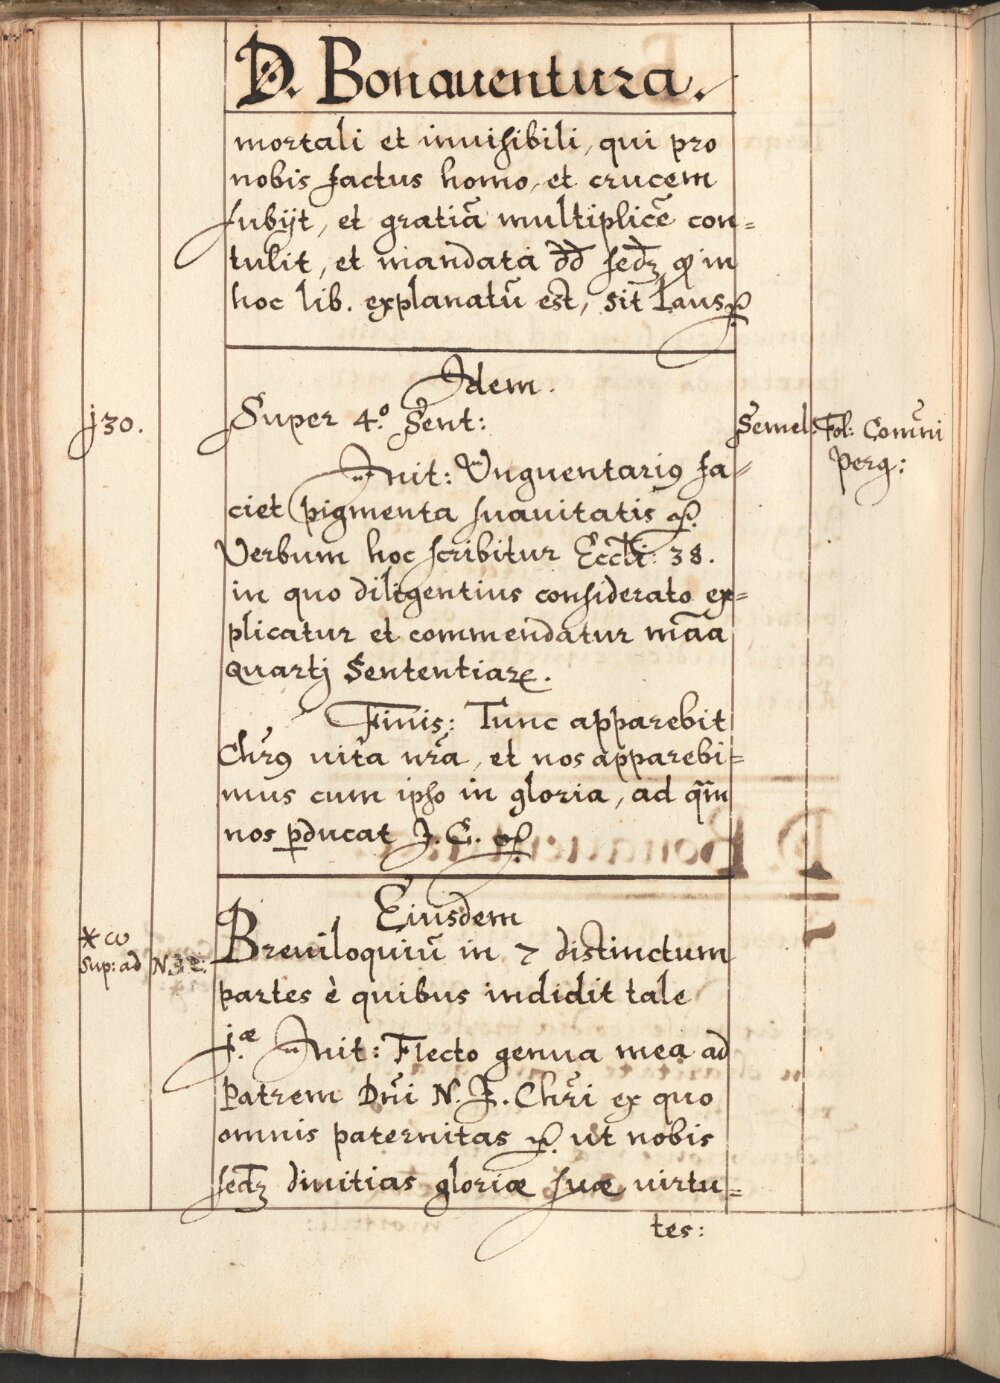 D. Bonauentura.
mortali et inuisibili, qui pro
nobis factus homo, et crucem
subijt, et gratiā multiplicē con=
tulit, et mandata dd sedz in
hoc lib. explanatū est, sit Laus
Idem.
j30.
Super 4.º Sent:
Semel:
Fol: Comūni
perg:
Init: Vnguentariꝰ fa=
ciet pigmenta suauitatis
Verbum hoc scribitur Eccli: 38.
in quo diligentius considerato ex=
plicatur et commendatur māa
quartj Sententiarꝝ.
Finis: Tunc apparebit
Chrꝰ uita nr̄a, et nos apparebi=
mus cum ipso in gloria, ad qm̄
nos ꝑducat J. C.
Eiusdem
* ω
Sup: ad N. 32:
Breuiloquiū in 7 distinctum
partes è quibus indidit tale
j.æ Init: Flecto genua mea ad
Patrem Dn̄i N. J. Chr̄i ex quo
omnis paternitas ut nobis
sedz diuitias gloriæ suæ uirtu=
tes: